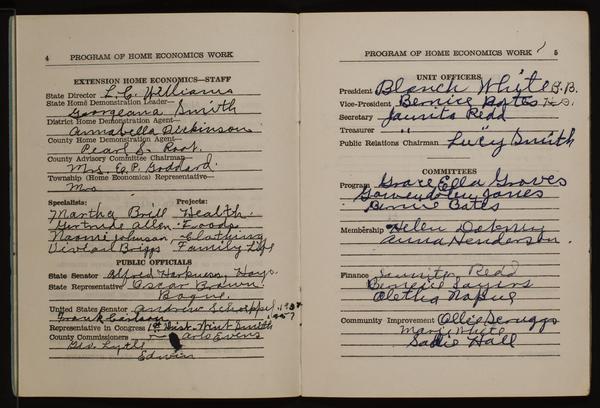 4 PROGRAM OF HOME ECONOMICS WORK
EXTENSION HOME ECONOMICS—STAFF
State Director L. C. Williams
State Home Demonstration Leader—
Georgeana Smith
District Home Demonstration Agent—
Annabella Dickinson
County Home Demonstration Agent—
Pearl S. Root
County Advisory Committee Chairman—
Mrs. E. P. Goddard
Township (Home Economics) Representative—
Mrs
Specialists: Projects:
Martha Brill Health
Gertrude Allen Foods
Naomi Johnson Clothing
Vivian Briggs Family Life
PUBLIC OFFICIALS
State Senator Alfred Hays
State Representative Oscar Brown
Bogue
United States Senator Andrew Schoeppel
Frank Carlson 1957
Representative in Congress 1st Dist. Wint Smith
County Commissioners Arlo Evens
Geo. Lytle
Edwin
PROGRAM OF HOME ECONOMICS WORK 5
UNIT OFFICERS
President Blanch White B.B.
Vice-President Bernice Bates
Secretary Juanita Redd
Treasurer "
Public Relations Chairman Lucy Smith
COMMITTEES
Program Grace Ella Groves
Gwendolyn Jones
Bernice Bates
Membership Helen
Anna Henderson
Finance Juanita Redd
Bernice Sayers
Oletha Napue
Community Improvement Ollie Scruggs
Marie White
Sadie Hall